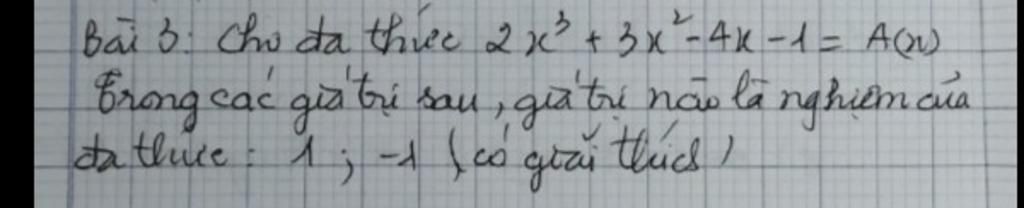 Bài 3: Cho đa thức 2x³ + 3x² - 4x - 1 = A(x)
Trong các giá trị sau, giá trị nào là nghiệm của
đa thức: 1; -1 (có giải thích)